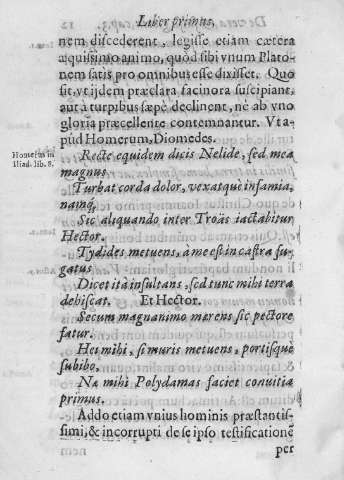 Liber primus,
nem discederent, legisse etiam cætera
æquissimo animo, quòd sibi vnum Plato-
nem satis pro omnibus esse dixisset. Quo
sit, vt ijdem præclara facinora suscipiant,
aut à turpibus sæpè declinent, nè ab vno
gloria præcellente contemnantur. Vt a-
pud Homerum, Diomedes.
Homerus in
Iliad. lib. 8.
Recte equidem dicis Nelide, sed mea
magnus
Turbat corda dolor, vexatquè infamia,
namq́;
Sic aliquando inter Troäs iactabitur
Hector.
Tydides metuens, à me est in castra fu-
gatus
Dicet ità insultans, sed tunc mihi terra
dehiscat. Et Hector.
Secum magnanimo mærens sic pectore
fatur.
Hei mihi, si muris metuens, portisquè
subibo,
Næ mihi Polydamas faciet conuitia
primus.
Addo etiam vnius hominis præstantis-
simi, & incorrupti de se ipso testificationē
per